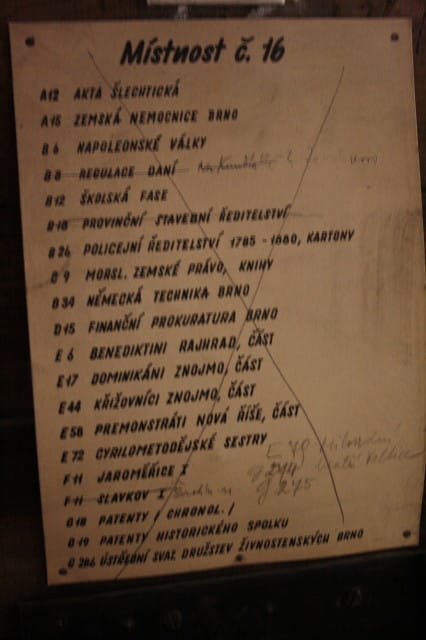 Místnost č. 16
A12 AKTA ŠLECHTICKÁ
A15 ZEMSKÁ NEMOCNICE BRNO
B 6 NAPOLEONSKÉ VÁLKY
B 8 REGULACE DANÍ
B12 ŠKOLSKÁ FASE
B18 PROVINČNÍ STAVEBNÍ ŘEDITELSTVÍ
B 26 POLICEJNÍ ŘEDITELSTVÍ 1785 - 1880, KARTONY
C 9 MORSL. ZEMSKÉ PRÁVO, KNIHY
B34 NĚMECKÁ TECHNIKA BRNO
D15 FINANČNÍ PROKURATURA BRNO
E 6 BENEDIKTINI RAJHRAD, ČÁST
E17 DOMINIKÁNI ZNOJMO, ČÁST
E44 KŘIŽOVNÍCI ZNOJMO, ČÁST
E58 PREMONSTRÁTI NOVÁ ŘÍŠE, ČÁST
E72 CYRILOMETODĚJSKÉ SESTRY
E 79 Milosrdní
bratří Valtice
F11 JAROMĚŘICE I
G 244
F11 SLAVKOV I
G 245
G18 PATENTY / CHRONOL. /
G 19 PATENTY HISTORICKÉHO SPOLKU
G 286 ÚSTŘEDNÍ SVAZ DRUŽSTEV ŽIVNOSTENSKÝCH BRNO